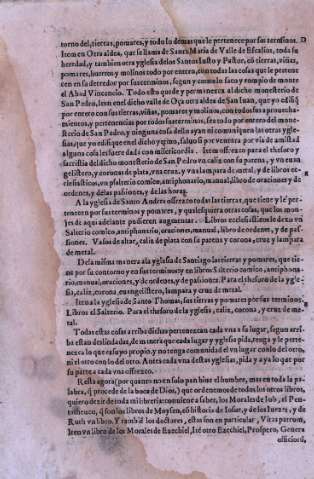 torno del, tierras, pomares, y todo lo demas que le pertenece por sus terminos.
Item en Otra aldea, que se llama de Santa Maria de Valle de Escalios, toda su
heredad, y tambien otra yglesia de los Santos Iusto y Pastor, cõ tierras, viñas,
pomares, huertos y molinos todo por entero, con todas las cosas que le pertene
cen en su derredor por sus terminos, segun y como lo saco y rompio de monte
el Abad Vincencio. Todo esto quede y permanezca al dicho monesterio de
San Pedro, Item en el dicho valle de Oça otra aldea de San Iuan, que yo edifiq̃
por entero con sus tierras, viñas, pomares y molinos, con todos sus aprouecha-
mientos, y pertenencias por todos sus terminos, sea todo por entero del monte
de San Pedro, y ninguna cosa dello ayan ni comuniquen las otras ygle-
sias, que yo edifique en el dicho yermo, saluo si por ventura por via de amistad
alguna cosa les fuere dada con misericordia. Item offrezco para el thesoro y
sacristia del dicho monesterio de San Pedro vn caliz con su patena, y vn euan
gelistero, y coronas de plata, vna cruz, y vna lampara de metal, y de libros ec-
clesiasticos, vn psalterio comico, antiphonario, manual, libro de oraciones y de
ordenes, y de las pasiones, y de las horas.
A la yglesia de Santo Andres offrezco todas las tierras, que tiene y le per-
tenecen por sus terminos y pomares, y qualesquiera otras cosas, que los mon-
jes de aqui adelante pudieren augmentar. Libros ecclesiasticos le doy vn
Salterio comico, antiphonario, oraciones, manual, libro de ordenes, y de pas-
siones. Vasos de altar, caliz de plata con su patena y corona, cruz y lampara
de metal.
De la misma manera a la yglesia de Santiago las tierras y pomares, que tie-
ne por su contorno y en sus terminos y en libros Salterio comico, antiphona-
rio, manual, oraciones, y de ordenes, y de pasiones. Para el thesoro de la ygle-
sia, caliz, corona, euangelistero, lampara y cruz de metal.
Item a la yglesia de Santo Thomas, sus tierras y pomares por sus terminos,
Libros el Salterio. Para el thesoro de la yglesia, caliz, corona, y cruz de me-
tal.
Todas estas cosas arriba dichas pertenezcan cada vna a su lugar, segun arri-
ba estan deslindadas, de manera que cada lugar y yglesia pida, tenga y le perte-
nezca lo que es suyo propio, y no tenga comunidad el vn lugar con lo del otro,
ni el otro con lo del otro. Antes cada vna destas yglesias, pida y aya lo que por
su parte a cada vna offrezco.
Resta agora (por quanto no en solo pan biue el hombre, mas en toda la pa-
labra, q̃ procede de la boca de Dios,) que ordenemos de todos los otros libros,
quiero dezir de toda mi libreria: conuiene a saber, los Morales de Iob, el Pen-
tatheuco, q̃ son los libros de Moysen, cõ historia de Iosue, y de los Iuezes, y de
Ruth vn libro. Y tambiẽ los doctores, estas son en particular, Vitas patrum,
Item vn libro de los Morales de Ezechiel, Itẽ otro Ezechiel, Prospero, Genera
officiorũ,